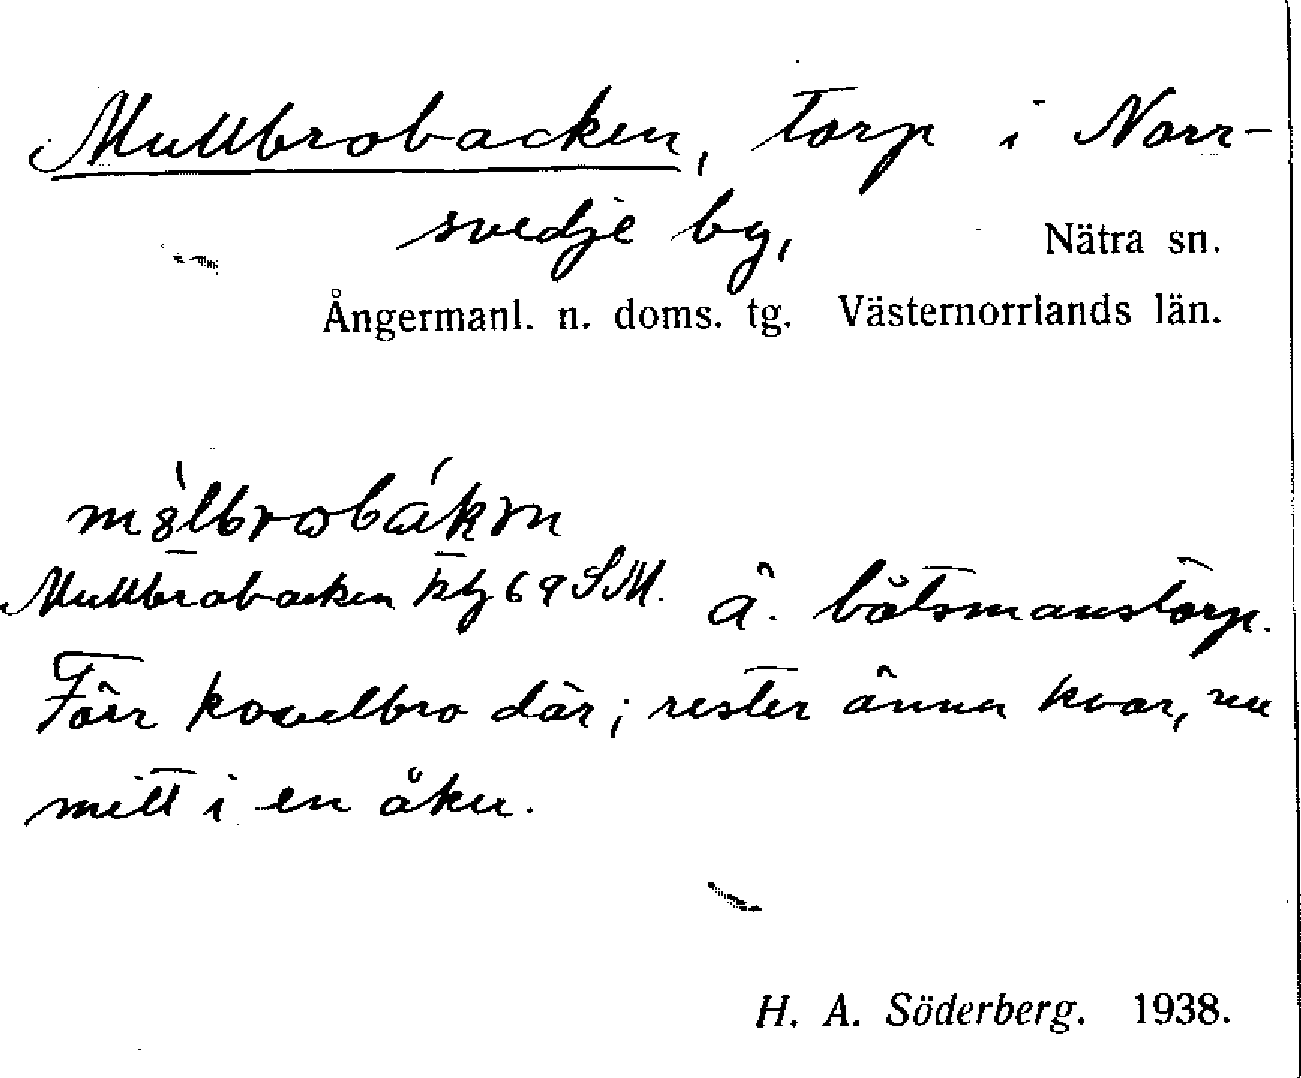 Mullbrobacken, torp i Norr-
svedje by,
Nätra sn.
Ångermanl. n. doms. tg. Västernorrlands län.
Mullbrobacken ktg 69 SM. Ä. båtsmanstorp.
Förr kavelbro där; rester ännu kvar, nu
mitt i en åker.
H. A. Söderberg. 1938.